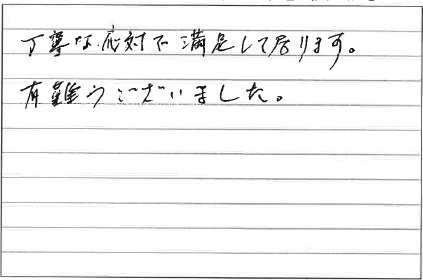 丁寧な応対で満足して居ります。
有難うございました。